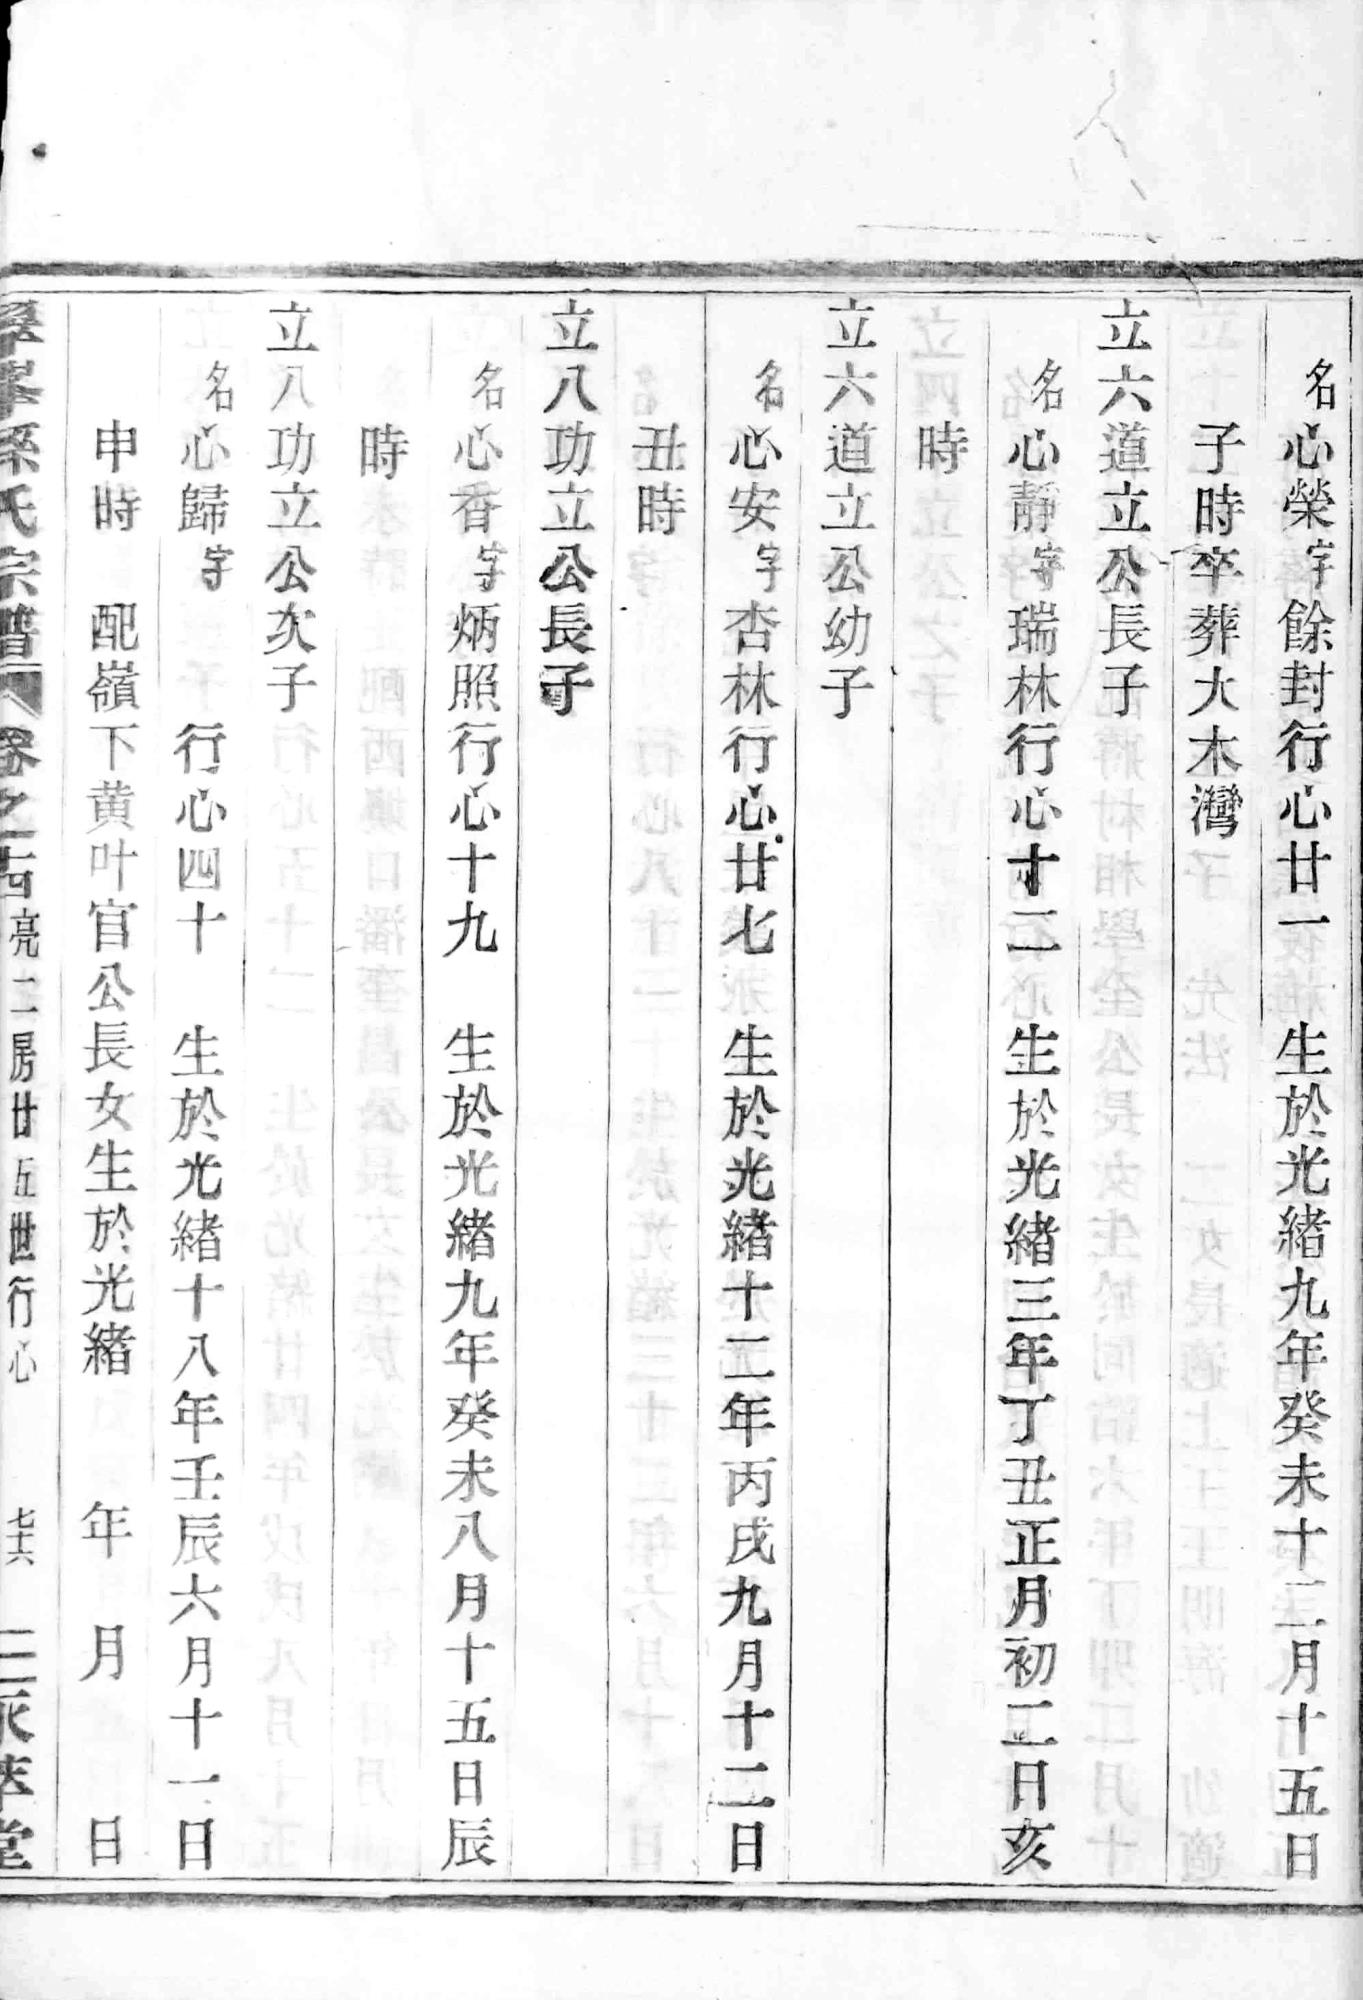 名心榮字餘封行心廿一　生於光緒九年癸未十二月十五日
子時卒葬大木灣
立六道立公長子
名心靜字瑞林行心十二　生於光緒三年丁丑正月初二日亥
時
立六道立公幼子
名心安字杏林行心廿七　生於光緒十二年丙戌九月十二日
丑時
立八功立公長子
名心香字炳照行心十九　生於光緒九年癸未八月十五日辰
時
立八功立公次子
名心歸字　　行心四十　生於光緒十八年壬辰六月十一日
申時　配嶺下黃叶官公長女生於光緒　　年　月　　日
峯孫氏宗譜　卷之十四　亮二房廿五世行心　七十六　二永萃堂